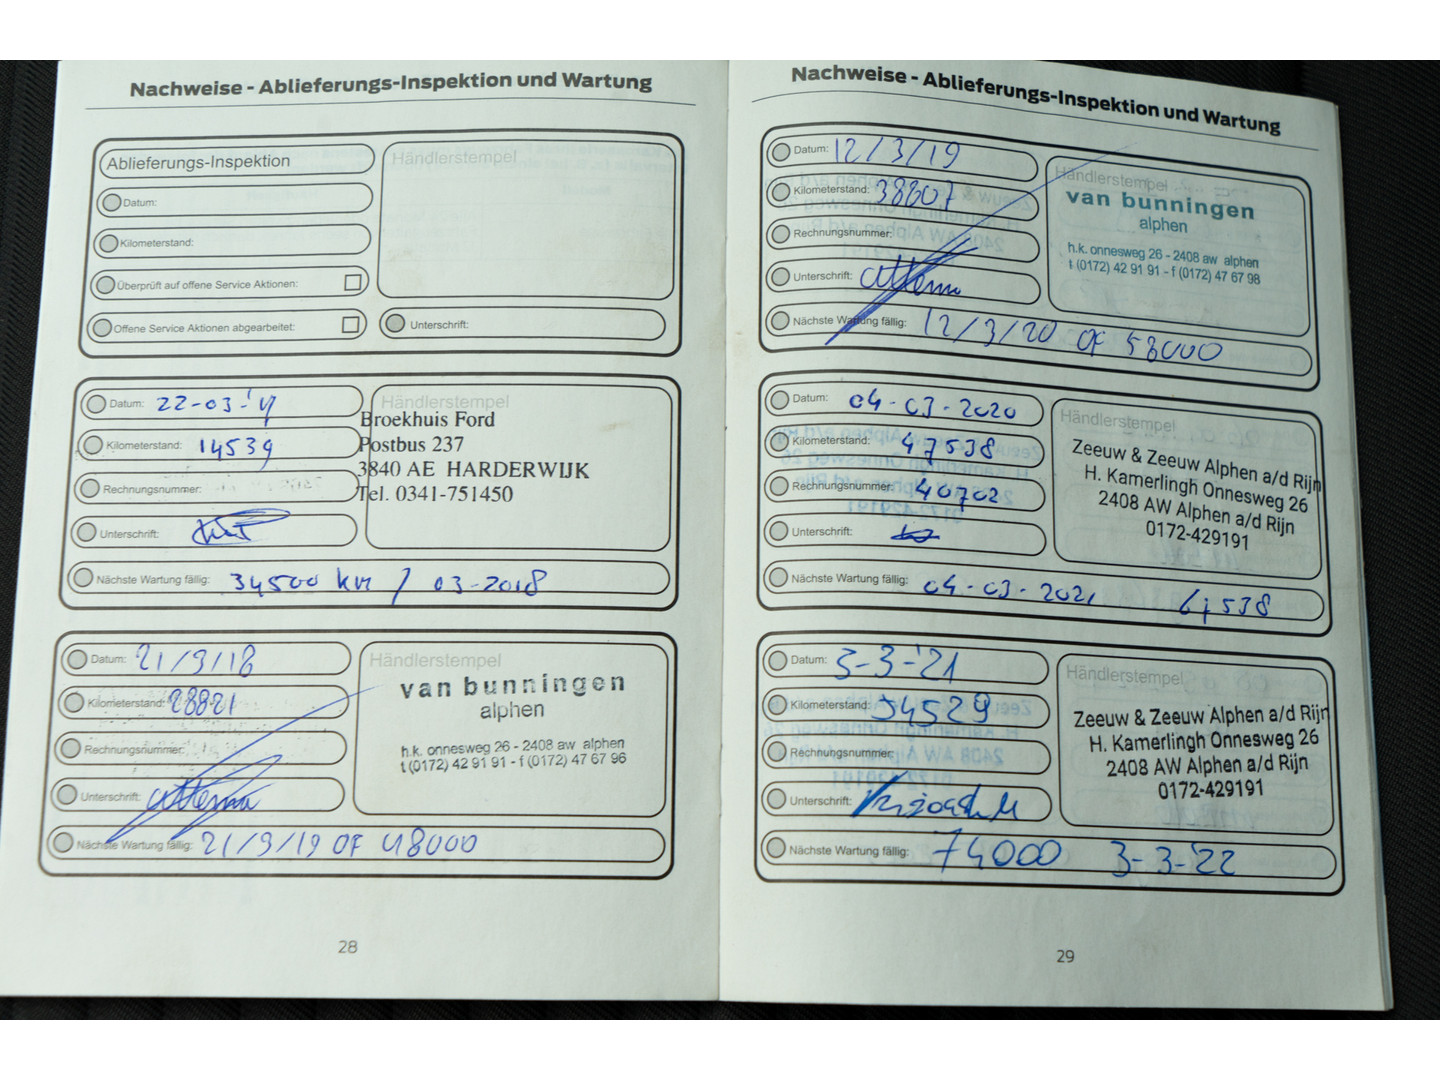 Nachweise - Ablieferungs-Inspektion und Wartung
Ablieferungs-Inspektion
Händlerstempel
Datum:
Kilometerstand:
Überprüft auf offene Service Aktionen:
Offene Service Aktionen abgearbeitet:
Unterschrift:
Datum: 22-03-'17
Händlerstempel
Broekhuis Ford
Postbus 237
3840 AE HARDERWIJK
Tel. 0341-751450
Kilometerstand: 14539
Rechnungsnummer:
Unterschrift:
Nächste Wartung fällig: 34500 km / 03-2018
Datum: 21/3/18
Händlerstempel
van bunningen
alphen
h.k. onnesweg 26 - 2408 aw alphen
t (0172) 42 91 91 - f (0172) 47 67 96
Kilometerstand: 28821
Rechnungsnummer:
Unterschrift:
Nächste Wartung fällig: 21/3/19 OF 48000
28
Nachweise - Ablieferungs-Inspektion und Wartung
Datum: 12/3/19
Händlerstempel
van bunningen
alphen
h.k. onnesweg 26 - 2408 aw alphen
t (0172) 42 91 91 - f (0172) 47 67 98
Kilometerstand: 38807
Rechnungsnummer:
Unterschrift:
Nächste Wartung fällig: 12/3/20 OF 58000
Datum: 04-03-2020
Händlerstempel
Zeeuw & Zeeuw Alphen a/d Rijn
H. Kamerlingh Onnesweg 26
2408 AW Alphen a/d Rijn
0172-429191
Kilometerstand: 47538
Rechnungsnummer: 40702
Unterschrift:
Nächste Wartung fällig: 04-03-2021 67538
Datum: 3-3-'21
Händlerstempel
Zeeuw & Zeeuw Alphen a/d Rijn
H. Kamerlingh Onnesweg 26
2408 AW Alphen a/d Rijn
0172-429191
Kilometerstand: 54529
Rechnungsnummer:
Unterschrift:
Nächste Wartung fällig: 74000 3-3-'22
29